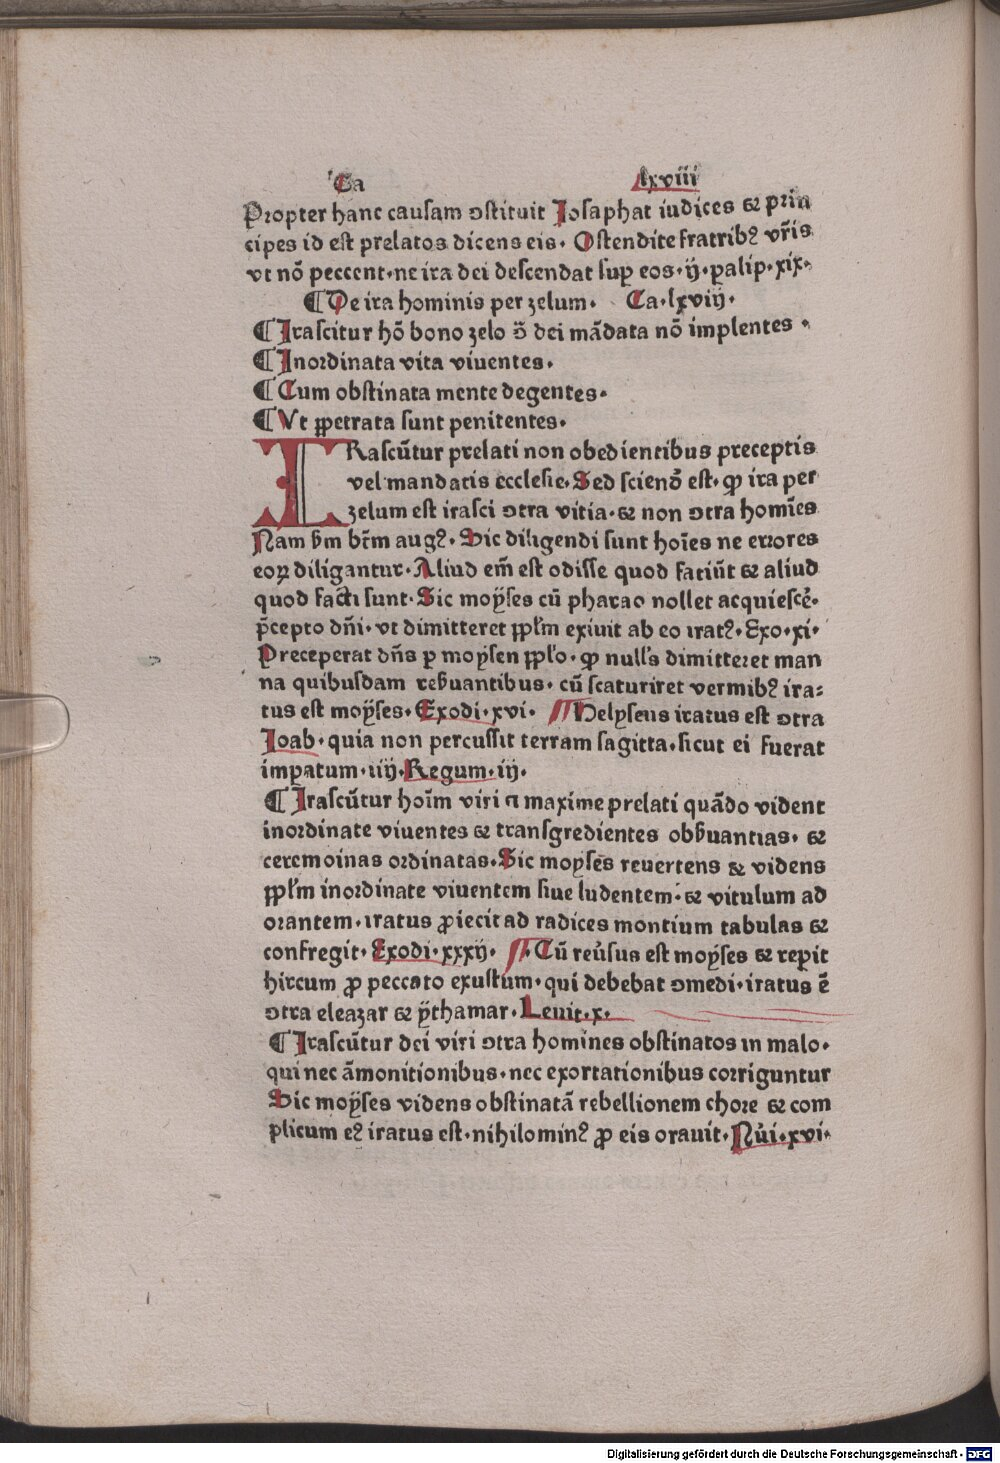 Ca lxviii
Propter hanc causam ɔstituit Josaphat iudices ⁊ prin
cipes id est prelatos dicens eis. Ostendite fratribꝰ vr̃is
vt nõ peccent. ne ira dei descendat suꝑ eos. ij. ꝑalip. xix.
¶ De ira hominis per zelum. Ca. lxviij.
¶ Irascitur hõ bono zelo ɔ̃ dei mãdata nõ implentes.
¶ Inordinata vita viuentes.
¶ Cum obstinata mente degentes.
¶ Vt ꝑpetrata sunt penitentes.
IRascũtur prelati non obedientibus preceptis
vel mandatis ecclesie. Sed sciendõ est. ꝙ ira per
zelum est irasci ɔtra vitia. ⁊ non ɔtra homĩes
Nam b̃m br̃m augꝰ. Sic diligendi sunt hoĩes ne errores
eoꝝ diligantur. Aliud em̃ est odisse quod faciũt ⁊ aliud
quod facti sunt. Sic moyses cũ pharao nollet acquiescẽ.
p̃cepto dñi. vt dimitteret ppl̃m exiuit ab eo iratꝰ. Exo. xi.
Preceperat dñs ꝑ moysen ppl̃o. ꝙ nullꝰs dimitteret man
na quibusdam reb̃uantibus. cũ scaturiret vermibꝰ ira⸗
tus est moyses. Exodi. xvi. Helyseus iratus est ɔtra
Joab. quia non percussit terram sagitta. sicut ei fuerat
imꝑatum. iiij. Regum. iij.
¶ Irascũtur hoĩm viri ⁊ maxime prelati quãdo vident
inordinate viuentes ⁊ transgredientes obb̃uantias. ⁊
ceremoinas ordinatas. Sic moyses reuertens ⁊ videns
ppl̃m inordinate viuentem siue ludentem. ⁊ vitulum ad
orantem. iratus ꝓiecit ad radices montium tabulas ⁊
confregit. Exodi. xxxij. Cũ reũsus est moyses ⁊ reꝑit
hircum ꝓ peccato exustum. qui debebat ɔmedi. iratus ẽ
ɔtra eleazar ⁊ ythamar. Leuit. x.
¶ Irascũtur dei viri ɔtra homines obstinatos in malo.
qui nec ãmonitionibus. nec exortationibus corriguntur
Sic moyses videns obstinatã rebellionem chore ⁊ com
plicum eꝰ iratus est. nihilominꝰ ꝓ eis orauit. Nũi. xvi.
Digitalisierung gefördert durch die Deutsche Forschungsgemeinschaft - DFG